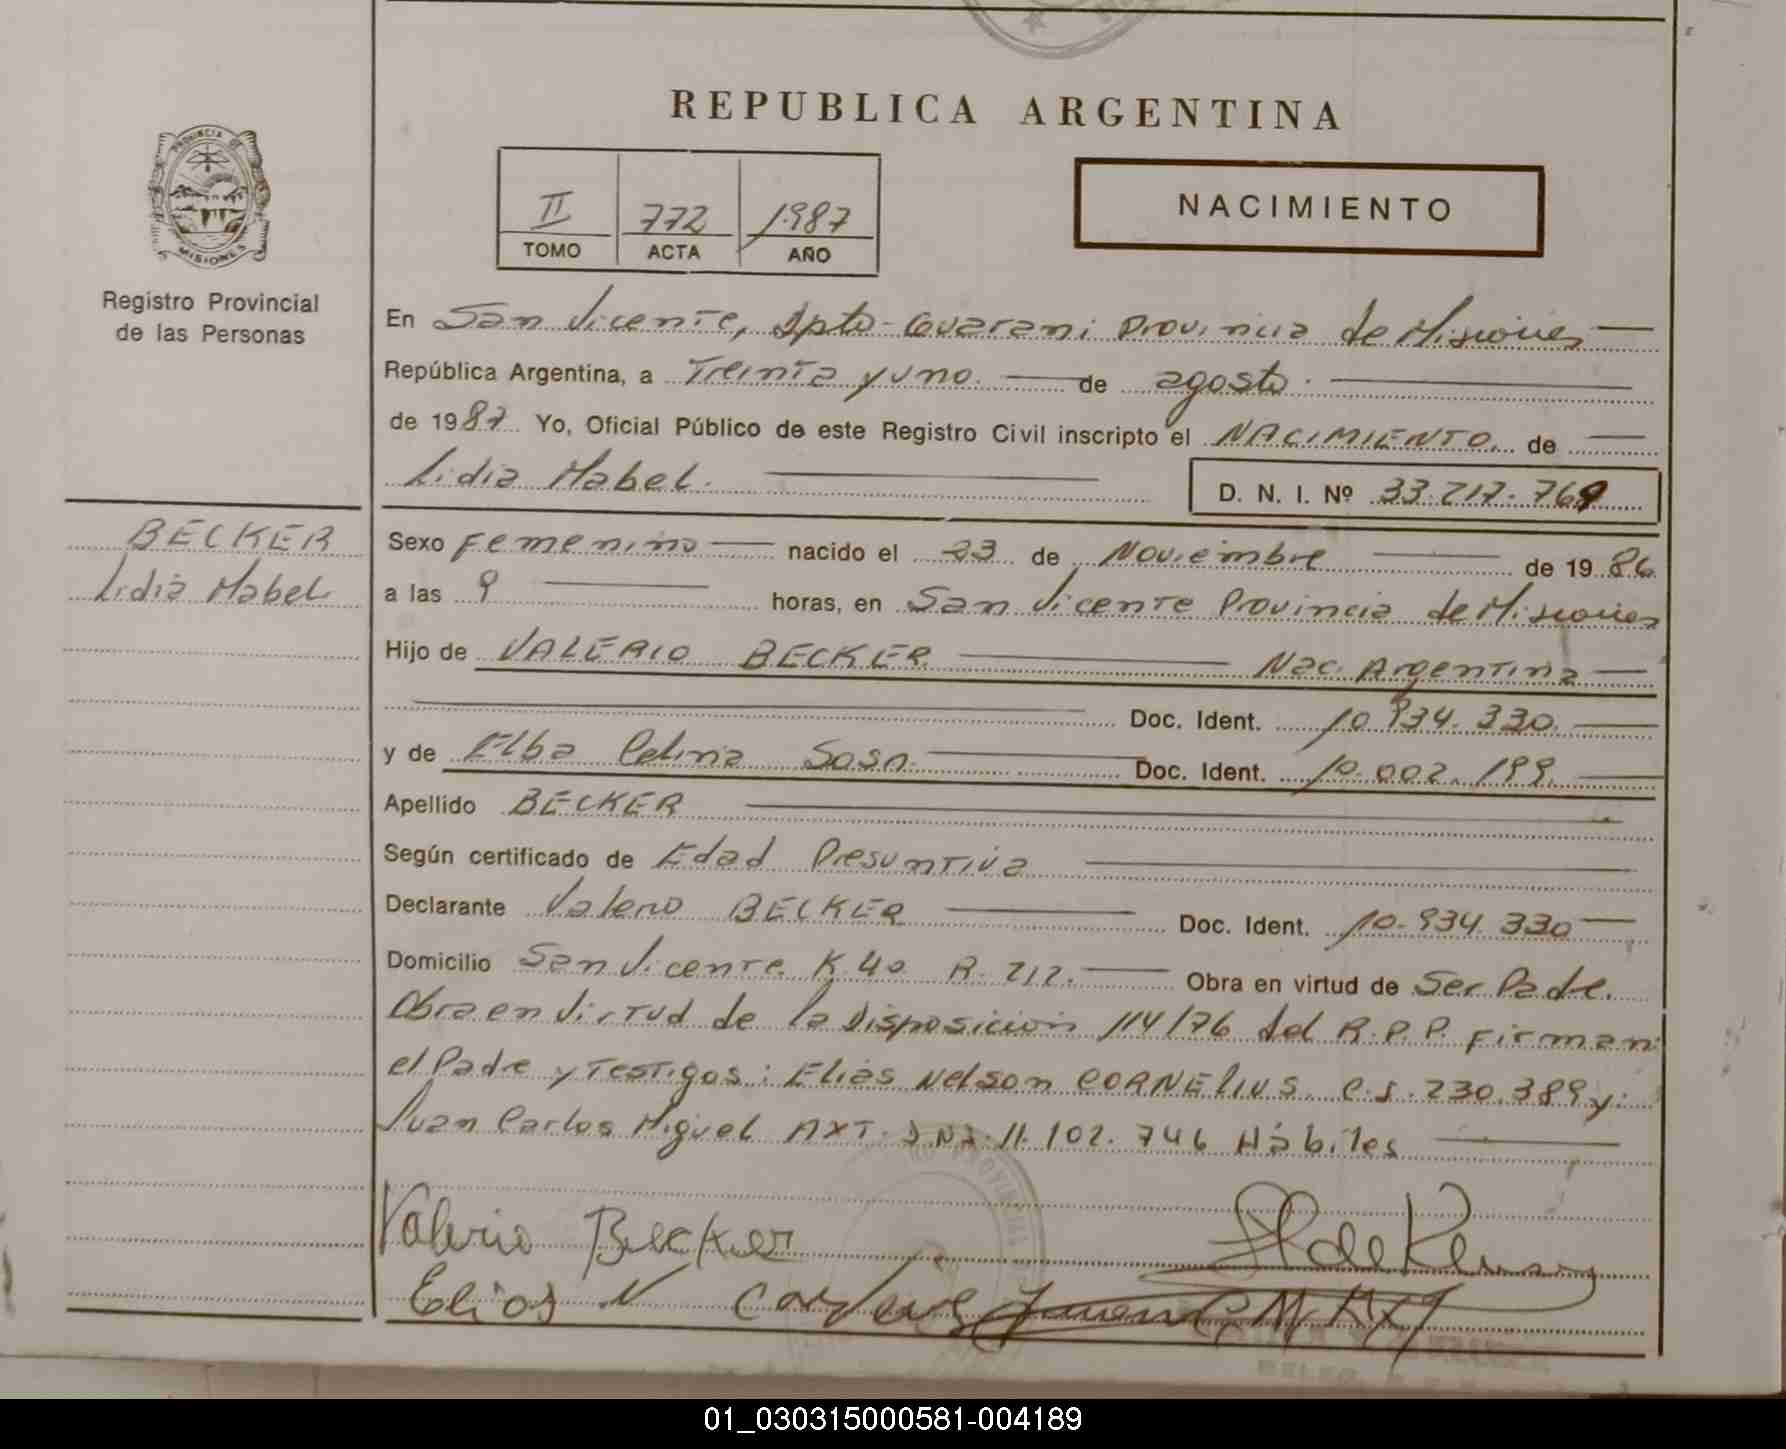 REPUBLICA ARGENTINA
PROVINCIA DE
MISIONES
Registro Provincial
de las Personas
II 772 1987
TOMO ACTA AÑO
NACIMIENTO
En San Vicente, Dpto- Guarani Provincia de Misiones
República Argentina, a Treinta y uno. de agosto.
de 1987. Yo, Oficial Público de este Registro Civil inscripto el NACIMIENTO. de
Lidia Mabel. D. N. I. Nº 33.217.769
BECKER
Lidia Mabel
Sexo Femenino nacido el 23 de Noviembre de 1986
a las 9 horas, en San Vicente Provincia de Misiones
Hijo de VALERIO BECKER Nac. Argentina
Doc. Ident. 10.934.330.
y de Elba Celina Sosa. Doc. Ident. 10.002.199.
Apellido BECKER
Según certificado de Edad Presuntiva
Declarante Valerio BECKER Doc. Ident. 10.934.330
Domicilio San Vicente. K.40 R. 212. Obra en virtud de Ser Padre.
Obra en Virtud de la Disposición 114/76 del R.P.P. Firman:
el Padre y Testigos: Elias Nelson CORNELIUS. C.I. 230.389 y:
Juan Carlos Miguel AXT. D.N.I. 11.102.746 Hábiles
Valerio Becker
Elias N Juan C. M. AXT
01_030315000581-004189